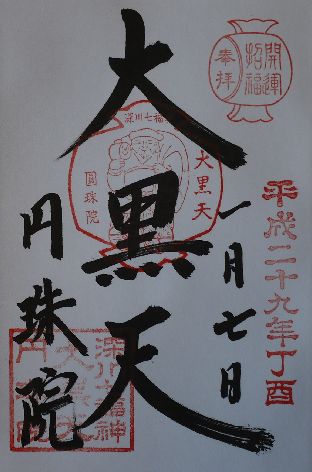 開運
招福
奉拝
平成二十九年丁酉
一月七日
深川七福神
大黒天
圓珠院
大黒天
円珠院
深川七福神